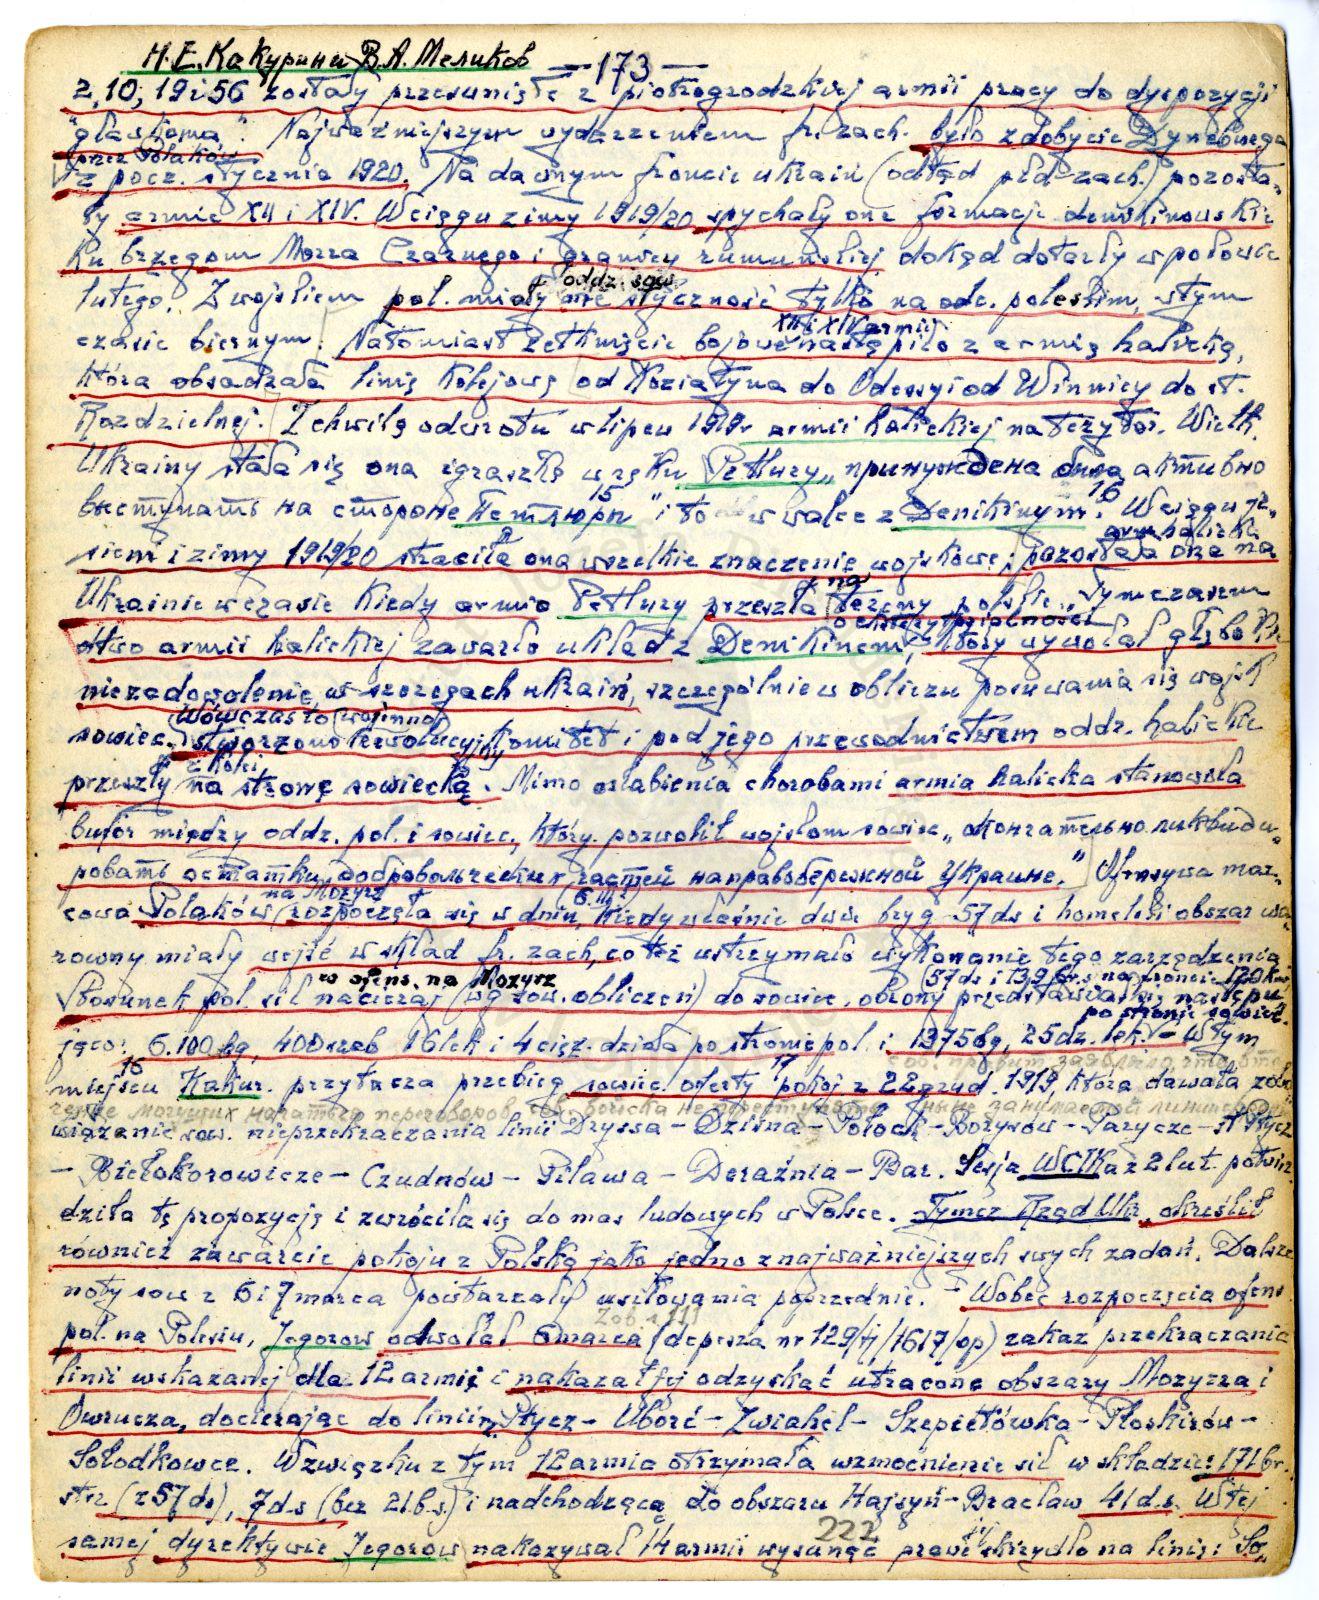 Н.Е.Какурин и В.А.Меликов
— 173 —
2, 10, 19 i 56 zostały przesunięte z piotrogrodzkiej armii pracy do dyspozycji
"gławkoma". Najważniejszym wydarzeniem fr. zach. było zdobycie Dyneburga
przez Polaków
z pocz. stycznia 1920. Na dawnym froncie ukraiń (odtąd płd-zach.) pozosta-
ły armie XII i XIV. W ciągu zimy 1919/20 spychały one formacje denikinowskie
ku brzegom Morza Czarnego i granicy rumuńskiej dokąd dotarły w połowie
oddz. sow.
lutego. Z wojskiem pol. miały one styczność tylko na odc. poleskim, w tym
XII i XIV armij
czasie biernym. Natomiast zetknięcie bojowe nastąpiło z armią halicką,
która obsadzała linię kolejową od Koziatyna do Odessy i od Winnicy do st.
Rozdzielnej. Z chwilą odwrotu w lipcu 1919 r. armii halickiej na terytor. Wielk.
Ukrainy stała się ona igraszką w ręku Petlury „принуждена была активно
15 16
выступать на стороне Петлюры" i to w walce z Denikinym. W ciągu je-
arm. halicka
sieni i zimy 1919/20 straciła ona wszelkie znaczenie wojskowe; pozostała ona na
na
Ukrainie w czasie kiedy armia Petlury przeszła tereny polskie. „Tymczasem
d-two armii halickiej zawarło układ z Denikinem, który wywołał głębokie
niezadowolenie w szeregach ukraiń, szczególnie w obliczu posuwania się wojsk
Wówczas to (wojenno)
sowiec. stworzono rewolucyjny komitet i pod jego przewodnictwem oddz. halickie
z kolei
przeszły na stronę sowiecką. Mimo osłabienia chorobami armia halicka stanowiła
bufor między oddz. pol. i sowiec., który pozwolił wojskom sowiec. „окончательно ликвиди-
ровать остатки добровольческих частей на правобережной Украине." Ofensywa mar-
na Mozyrz (6.III)
cowa Polaków rozpoczęła się w dniu, kiedy właśnie dwie bryg 57 ds i homelski obszar wa-
rowny miały wejść w skład fr. zach, co też wstrzymało wykonanie tego zarządzenia
w ofens. na Mozyrz (57 ds i 139 br.s na froncie 120 km)
Stosunek pol. sił nacieraj (wg sow. obliczeń) do sowiec. obrony przedstawiał się następu-
po stronie sowiec.
jąco: 6.100 bg, 400 szab 16 lek i 4 cięż. działa po stronie pol. i 1375 bg, 25 dz. lek. – W tym
16 17
miejscu Kakur. przytacza przebieg sowiec. oferty pokoj z 22 grud. 1919, która dawała zobo-
wiązanie sow. nieprzekraczania linii Dryssa – Dzisna – Połock – Borysów – Parycze – st. Ptycz
– Białokorowicze – Czudnów – Piława – Deraźnia – Bar. Sesja WCIK a z 2 lut. potwier-
dziła tę propozycję i zwróciła się do mas ludowych w Polsce. Tymcz Rząd Ukr. określił
również zawarcie pokoju z Polską jako jedno z najważniejszych swych zadań. Dalsze
noty sow z 6 i 7 marca powtarzały usiłowania poprzednie. – Wobec rozpoczęcia ofens
pol. na Polesiu, Jegorow odwołał 8 marca (depesza nr 129/tj/1617/op) zakaz przekraczania
linii wskazanej dla 12 armię i nakazał jej odzyskać utracone obszary Mozyrza i
Owrucza, docierając do linii Ptycz – Uborć – Zwiahel – Szepietówka – Płoskirów –
Sołodkowce. W związku z tym 12 armia otrzymała wzmocnienie sił w składzie: 171 br.
strz (z 57 ds), 7 ds (bez 21 b.s) i nadchodzącą do obszaru Hajsyń – Bracław 41 d.s. W tej
222
samej dyrektywie Jegorow nakazywał 14 armii wysunąć prawe skrzydło na linię: So-